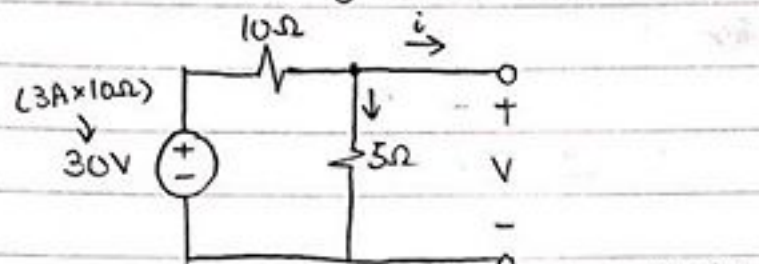 10Ω
i
(3A×10Ω)
30V
+
-
5Ω
+
V
-